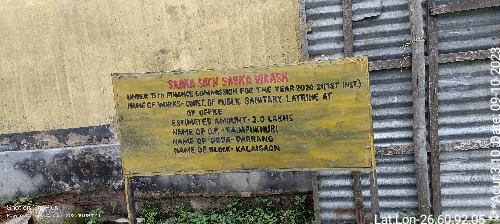 SABKA SATH SABKA VIKASH
UNDER 15TH FINANCE COMMISSION FOR THE YEAR 2020-21(1ST INST.)
NAME OF WORKS- CONST. OF PUBLIC SANITARY LATRINE AT
GP OFFICE
ESTIMATED AMOUNT- 3.0 LAKHS
NAME OF G.P.- RAJAPUKHURI
NAME OF DRDA- DARRANG
NAME OF BLOCK- KALAIGAON
Shot on
Lat Lon-26.60,92.0